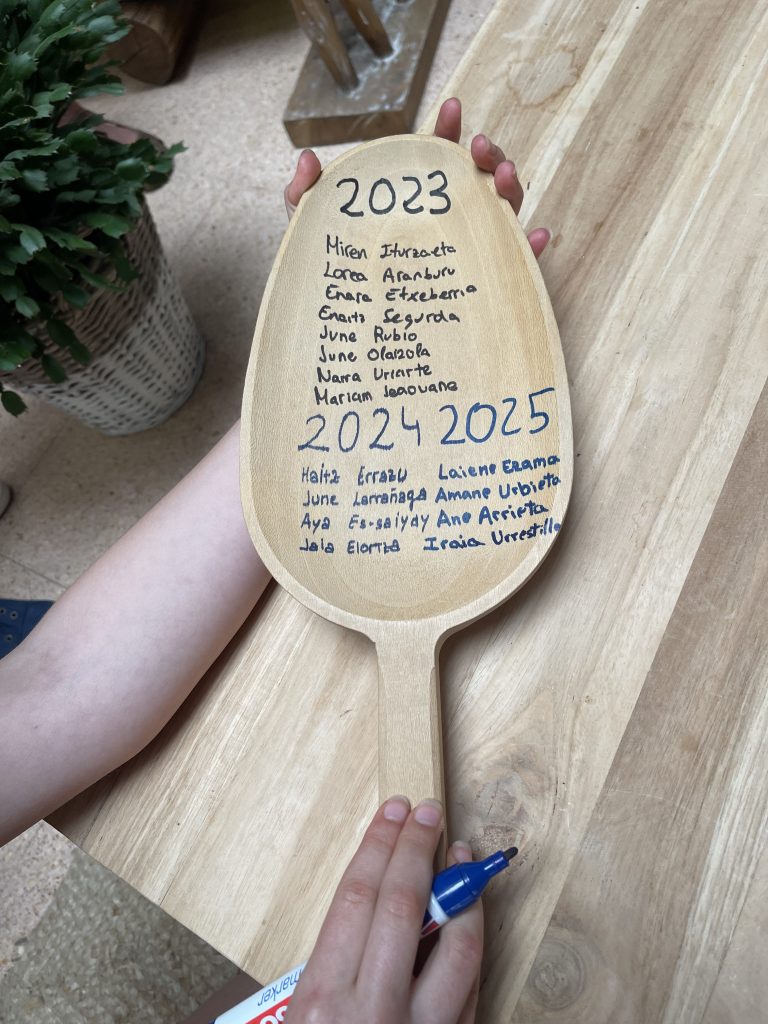 2023
Miren Iturzaeta
Lorea Aranburu
Enara Etxeberria
Enaitz Segurola
June Rubio
June Olaizola
Nara Uriarte
Mariam
2024 2025
Haitz Errazu Laiene Ezama
June Larrañaga Amane Urbieta
Aya Es-saiydy Ane Arrieta
Jala Elortza Iraia Urrestilla
marker